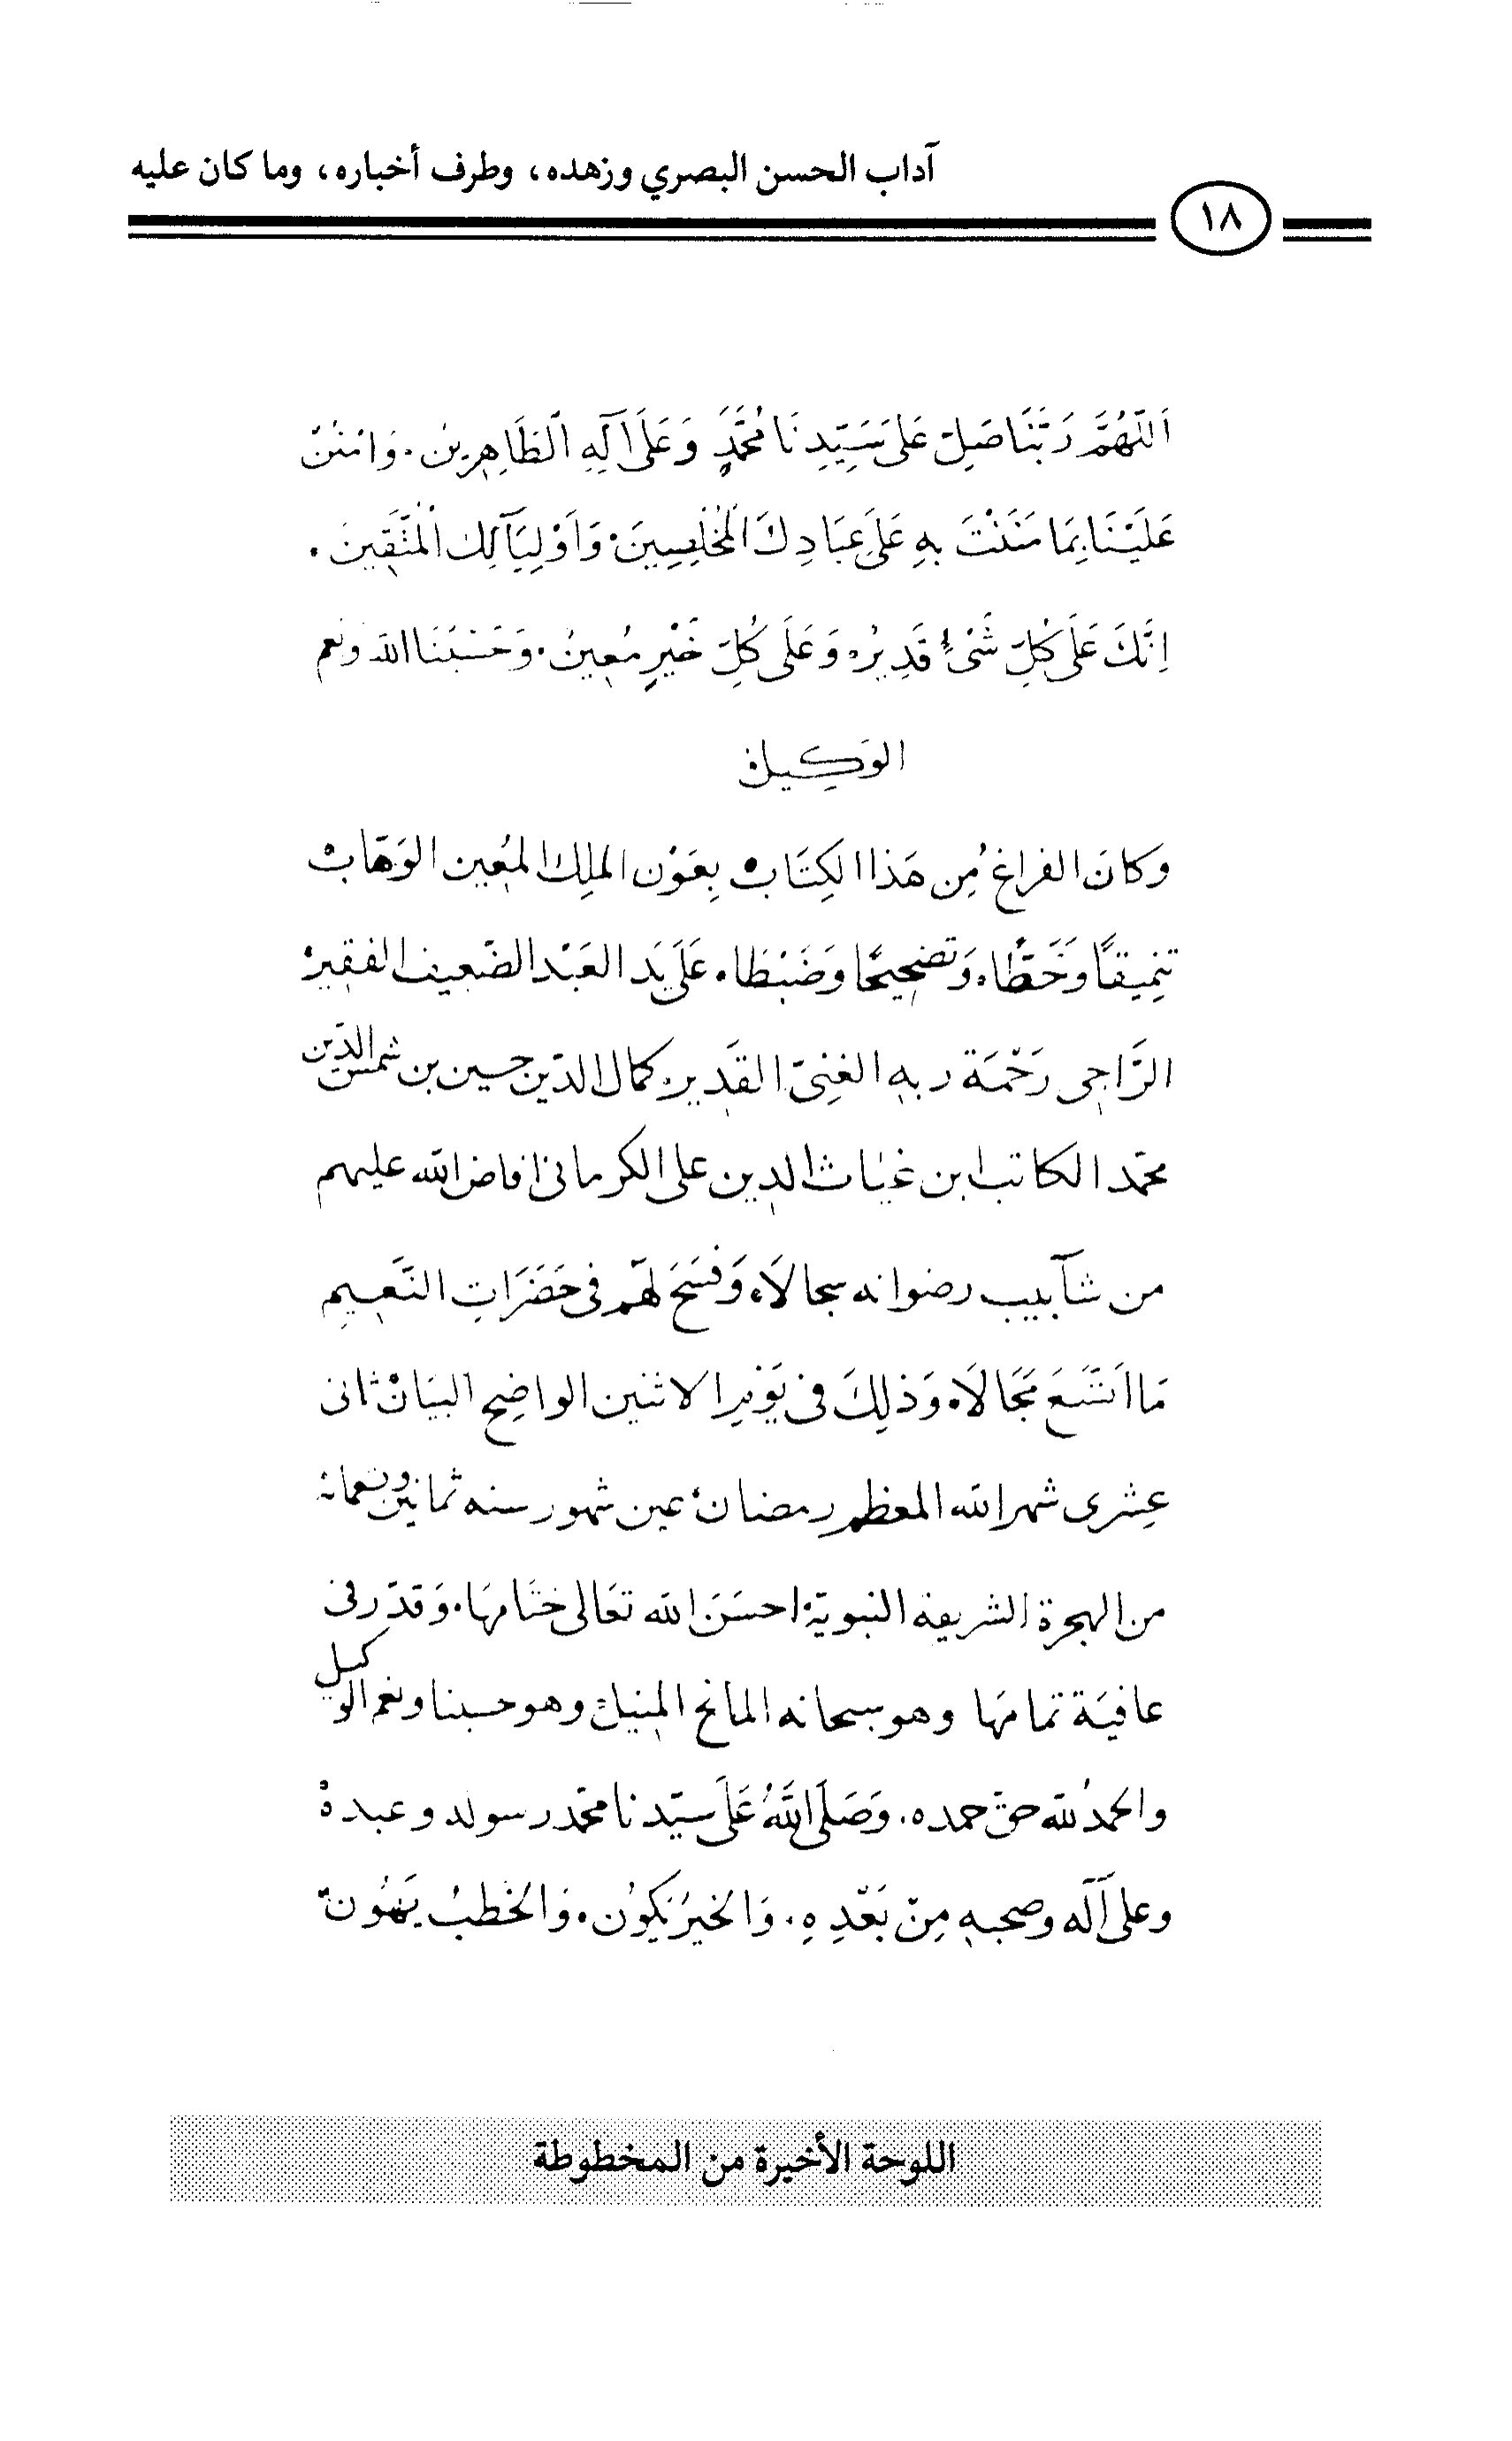 آداب الحسن البصري وزهده، وطرف أخباره، وما كان عليه
١٨
اَللّٰهُمَّ رَبَّنَا صَلِّ عَلَى سَيِّدِنَا مُحَمَّدٍ وَعَلَى اٰلِهِ الطَّاهِرِينَ. وَامْنُنْ
عَلَيْنَا بِمَا مَنَنْتَ بِهِ عَلَى عِبَادِكَ الْمُخْلِصِينَ. وَاَوْلِيَآئِكَ الْمُتَّقِينَ.
اِنَّكَ عَلَى كُلِّ شَىْءٍ قَدِيرٌ. وَعَلَى كُلِّ خَيْرٍ مُعِينٌ. وَحَسْبُنَا الله ونعم
الوَكِيل
وكَانَ الفراغ مِن هَذا الكِتَاب بِعَوْن الملِك المُعِين الوَهّاب
تنمِيقاً وَخَطًّا. وَتصْحِيحًا وَضَبْطًا. عَلَى يَد العَبْد الضّعيف الفقير
الرَّاجى رَحْمَة ربه الغنِىّ القَدِير. كمال الدّين حسين بن شمس الدّين
محمّد الكاتب ابن غيَاث الدين على الكرمانى افاض الله عليهم
من شآبيب رضوانه سجالاً. وَفسَحَ لهُم فى حَضَرَاتِ النَّعِيمِ
مَا اتَّسَعَ مَجَالاً. وَذلِكَ فى يَوْم الاثنين الواضِح البَيَان ثانى
عِشرى شهر الله المعظم رمضان عين شهور سنه ثمانين وتسعمائة
من الهجرة الشريفة النبوية احسَنَ الله تعَالى ختامهَا. وَقدّر فى
عافيَة تمامهَا وهو سبحانه المانح المنيل وهو حسبنا ونعم الوكيل
والحمدُ لله حقّ حمده. وَصَلَّى اللَّهُ عَلَى سيّدنا محمّد رسوله وعبده
وعلى آله وصحبه مِنْ بَعْدِهِ. وَالخَيرُ يَكُون. وَالخَطبُ يَهُون
اللوحة الأخيرة من المخطوطة